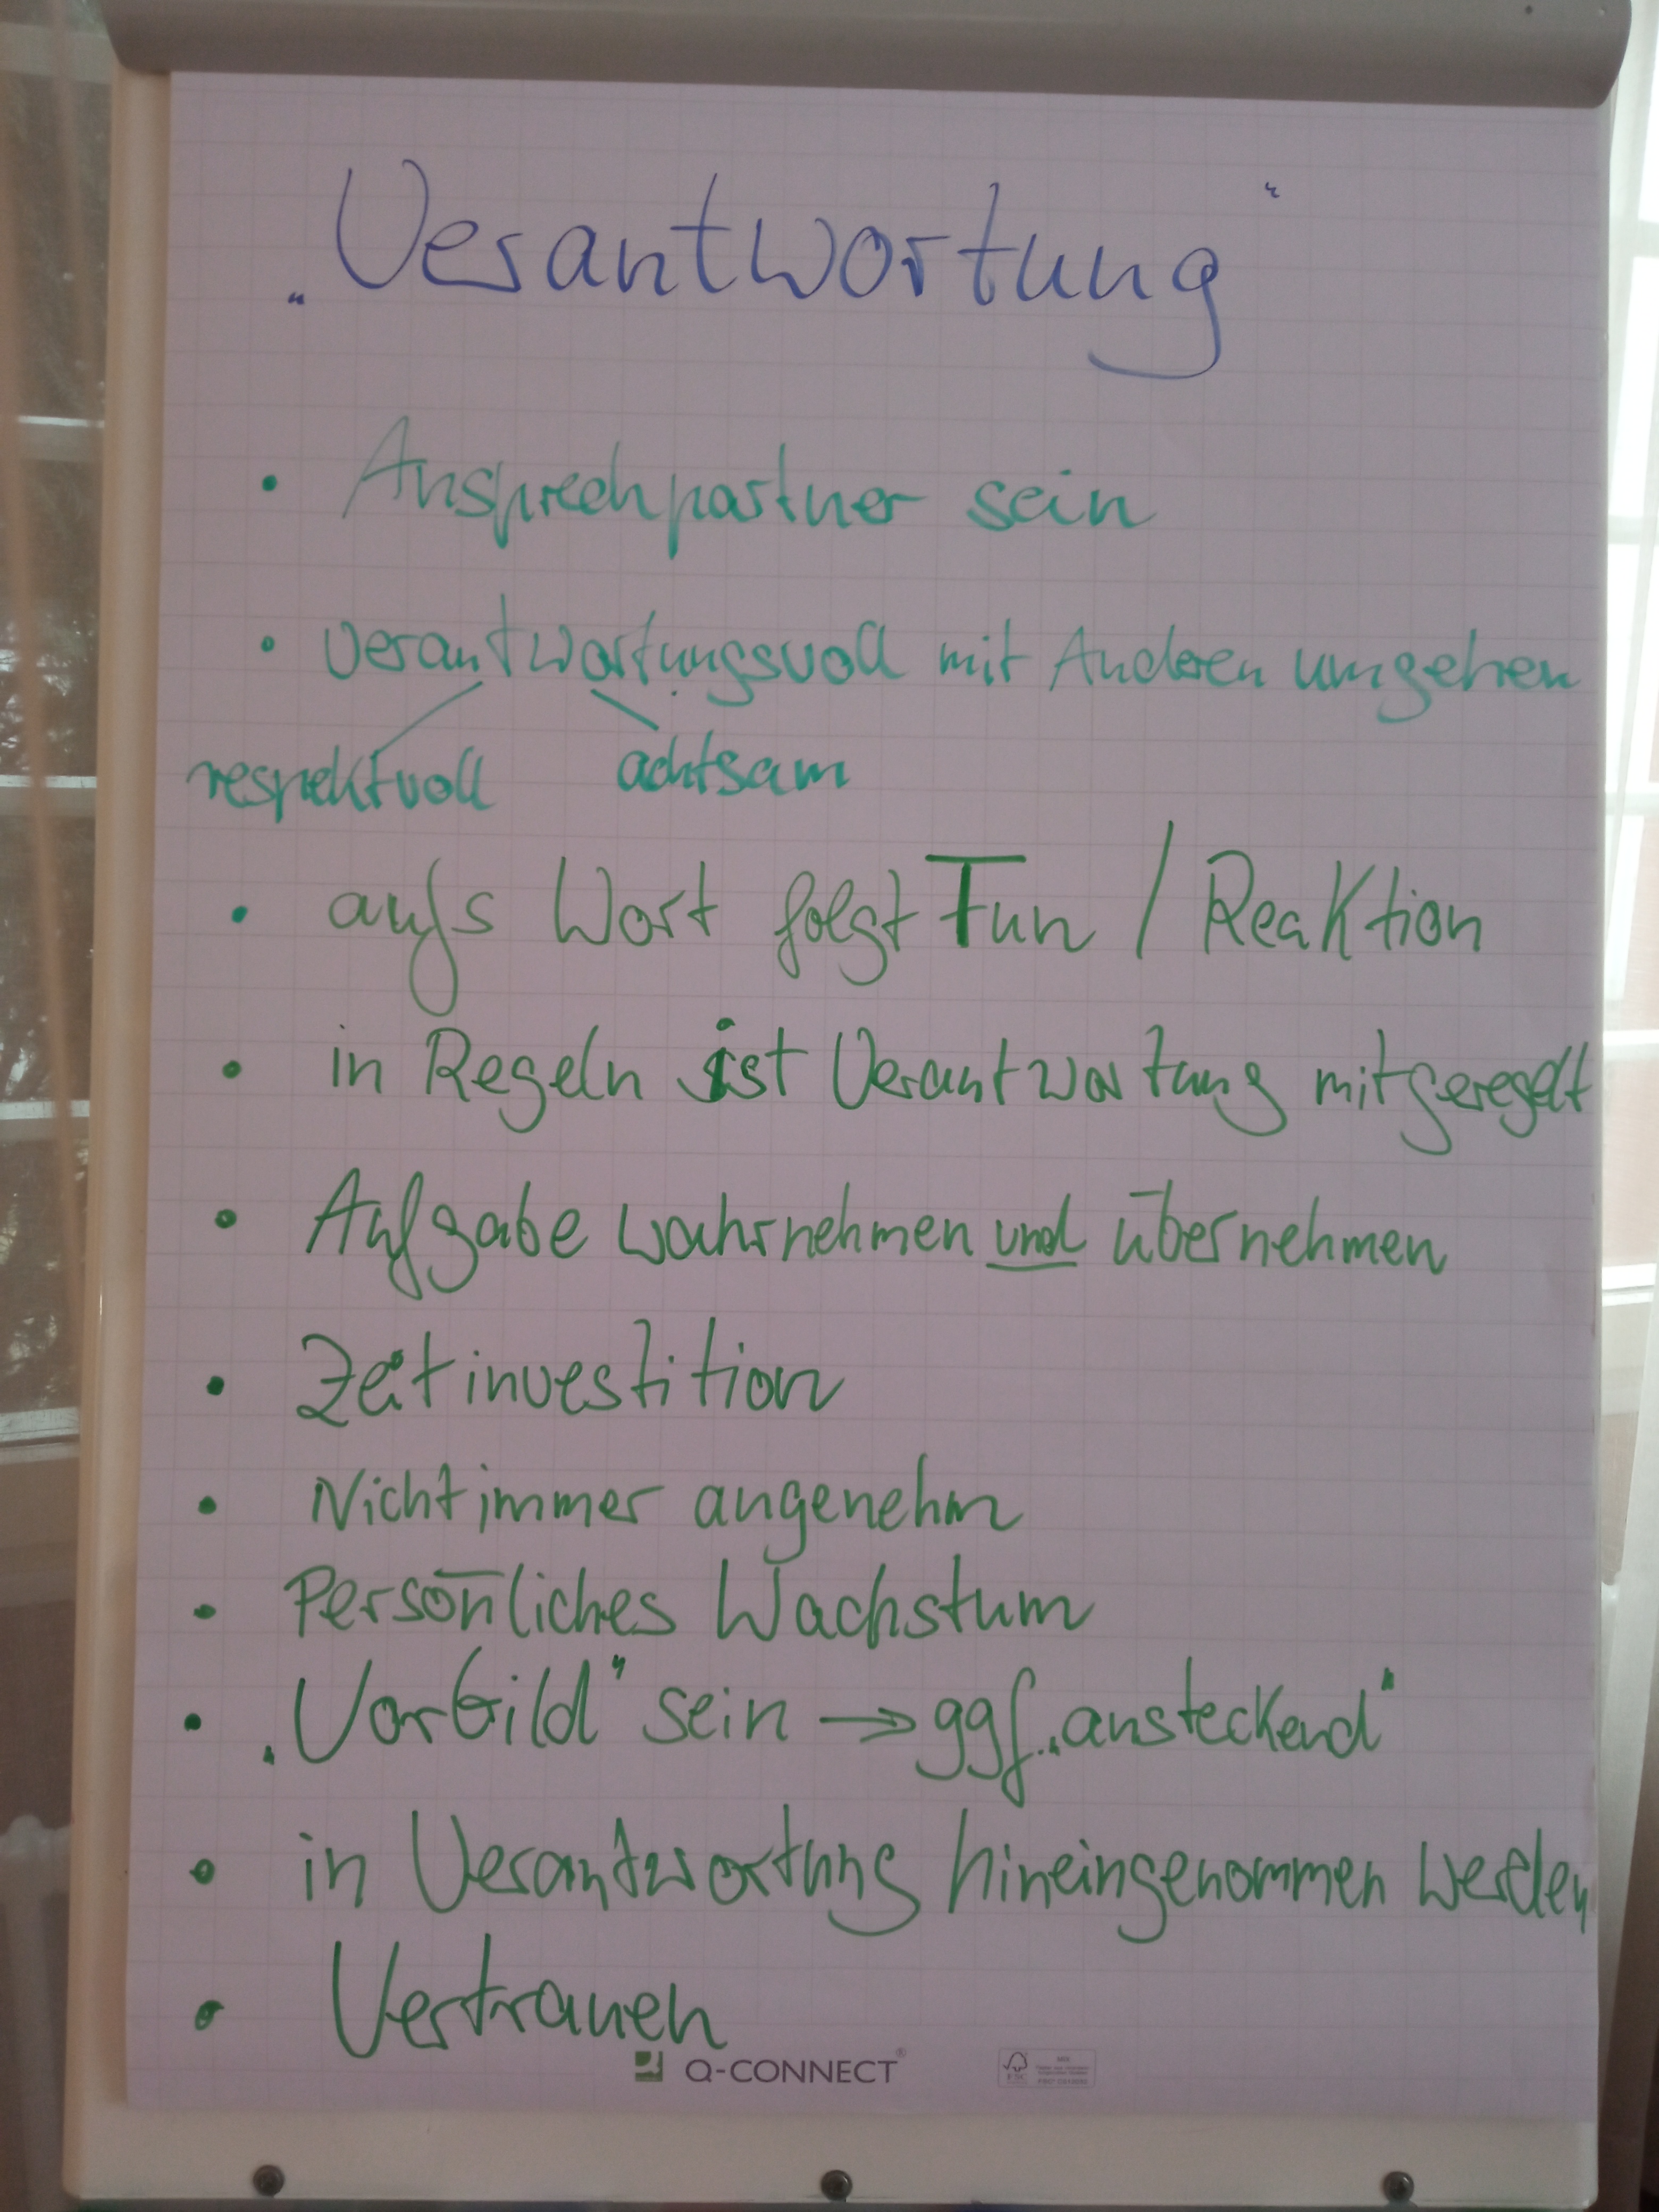 „Verantwortung"
• Ansprechpartner sein
• verantwortungsvoll mit Anderen umgehen
respektvoll achtsam
• aufs Wort folgt Tun / Reaktion
• in Regeln ist Verantwortung mitgeregelt
• Aufgabe wahrnehmen und übernehmen
• Zeitinvestition
• Nicht immer angenehm
• Persönliches Wachstum
• „Vorbild" sein → ggf. „ansteckend"
• in Verantwortung hineingenommen werden
• Vertrauen
Q-CONNECT®
FSC MIX